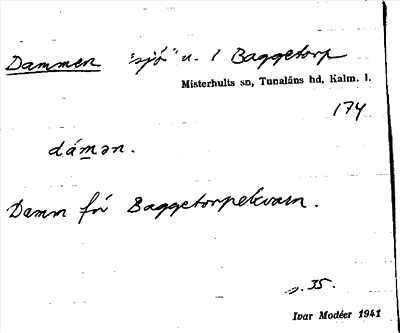 Dammen "sjö" u. 1 Baggetorp
Misterhults sn, Tunaläns hd, Kalm. l.
174
dámən.
Damm för Baggetorpekvarn.
s. 35.
Ivar Modéer 1941